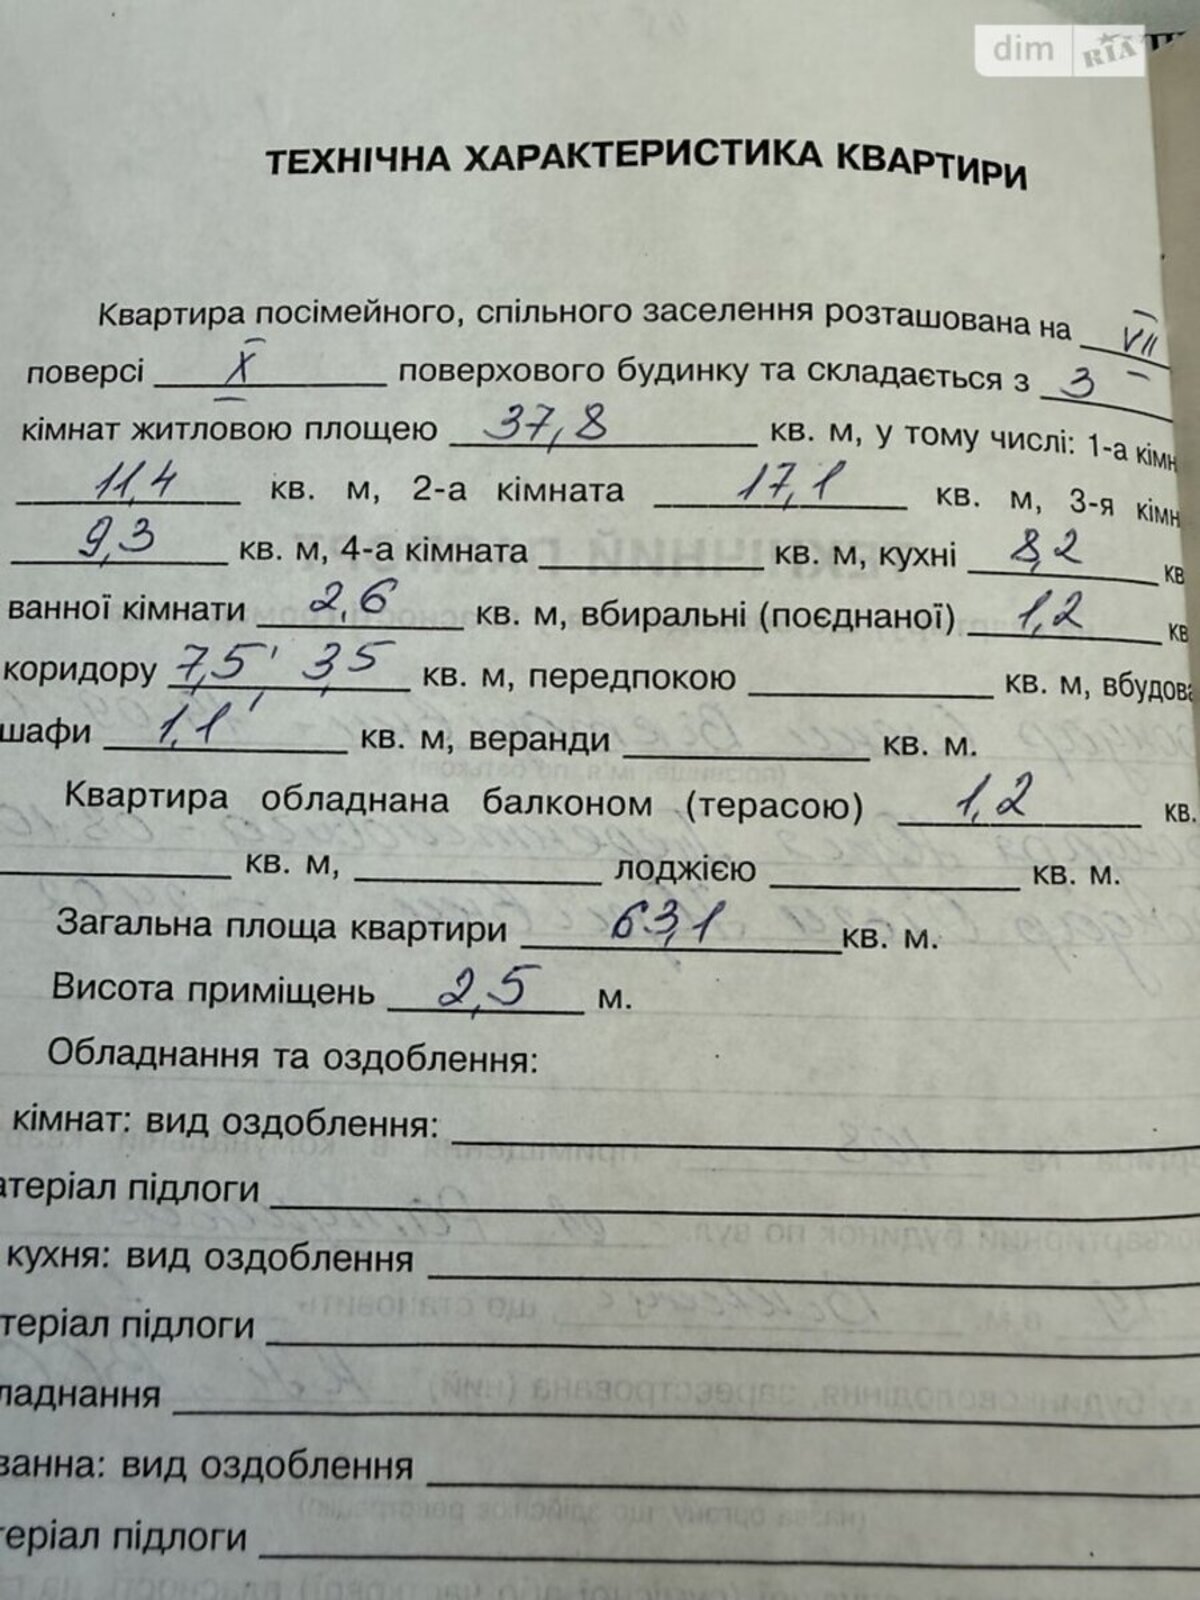 dim RIA
ТЕХНІЧНА ХАРАКТЕРИСТИКА КВАРТИРИ
Квартира посімейного, спільного заселення розташована на VII
поверсі X поверхового будинку та складається з 3
кімнат житловою площею 37,8 кв. м, у тому числі: 1-а кімн
11,4 кв. м, 2-а кімната 17,1 кв. м, 3-я кімн
9,3 кв. м, 4-а кімната кв. м, кухні 8,2 кв
ванної кімнати 2,6 кв. м, вбиральні (поєднаної) 1,2 кв
коридору 7,5, 3,5 кв. м, передпокою кв. м, вбудова
шафи 1,1 кв. м, веранди кв. м.
Квартира обладнана балконом (терасою) 1,2 кв.
кв. м, лоджією кв. м.
Загальна площа квартири 63,1 кв. м.
Висота приміщень 2,5 м.
Обладнання та оздоблення:
кімнат: вид оздоблення:
атеріал підлоги
кухня: вид оздоблення
теріал підлоги
ладнання
ванна: вид оздоблення
теріал підлоги